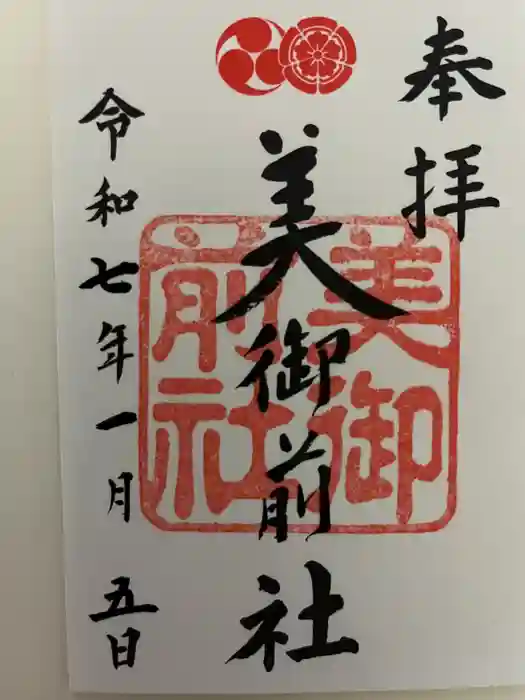 奉拝
美御前社
美御前社
令和七年一月五日